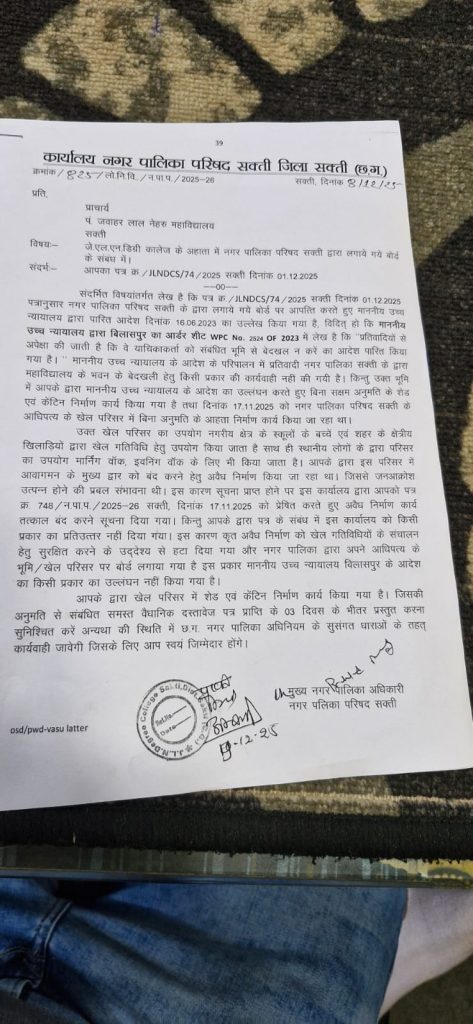 39
कार्यालय नगर पालिका परिषद सक्ती जिला सक्ती (छ.ग.)
क्रमांक/825/लो.नि.वि./न.पा.प./2025-26 सक्ती, दिनांक 8/12/25
प्रति,
प्राचार्य
पं. जवाहर लाल नेहरू महाविद्यालय
सक्ती
विषय:- जे.एल.एन.डिग्री कालेज के अहाता में नगर पालिका परिषद सक्ती द्वारा लगाये गये बोर्ड
के संबध में।
संदर्भ:- आपका पत्र क्र./JLNDCS/74/2025 सक्ती दिनांक 01.12.2025
---00---
संदर्भित विषयांतर्गत लेख है कि पत्र क्र./JLNDCS/74/2025 सक्ती दिनांक 01.12.2025
पत्रानुसार नगर पालिका परिषद सक्ती के द्वारा लगाये गये बोर्ड पर आपत्ति करते हुए माननीय उच्च
न्यायालय द्वारा पारित आदेश दिनांक 16.06.2023 का उल्लेख किया गया है, विदित हो कि माननीय
उच्च न्यायालय द्वारा बिलासपुर का आर्डर शीट WPC No. 2524 OF 2023 में लेख है कि "प्रतिवादियो से
अपेक्षा की जाती है कि वे याचिकाकर्ता को संबधित भूमि से बेदखल न करें का आदेश पारित किया
गया है। " माननीय उच्च न्यायालय के आदेश के परिपालन में प्रतिवादी नगर पालिका सक्ती के द्वारा
महाविद्यालय के भवन के बेदखली हेतु किसी प्रकार की कार्यवाही नहीं की गयी है। किन्तु उक्त भूमि
में आपके द्वारा माननीय उच्च न्यायालय के आदेश का उल्लंघन करते हुए बिना सक्षम अनुमति के शेड
एवं केंटिन निर्माण कार्य किया गया है तथा दिनांक 17.11.2025 को नगर पालिका परिषद सक्ती के
आधिपत्य के खेल परिसर में बिना अनुमति के आहता निर्माण कार्य किया जा रहा था।
उक्त खेल परिसर का उपयोग नगरीय क्षेत्र के स्कूलों के बच्चें एवं शहर के क्षेत्रीय
खिलाड़ियों द्वारा खेल गतिविधि हेतु उपयोग किया जाता है साथ ही स्थानीय लोगों के द्वारा परिसर
का उपयोग मार्निंग वॉक, इवनिंग वॉक के लिए भी किया जाता है। आपके द्वारा इस परिसर में
आवागमन के मुख्य द्वार को बंद करने हेतु अवैध निर्माण किया जा रहा था। जिससे जनआक्रोश
उत्पन्न होने की प्रबल संभावना थी। इस कारण सूचना प्राप्त होने पर इस कार्यालय द्वारा आपको पत्र
क्र. 748/न.पा.प./2025-26 सक्ती, दिनांक 17.11.2025 को प्रेषित करते हुए अवैध निर्माण कार्य
तत्काल बंद करने सूचना दिया गया। किन्तु आपके द्वारा पत्र के संबंध में इस कार्यालय को किसी
प्रकार का प्रतिउत्तर नहीं दिया गंया। इस कारण कृत अवैध निर्माण को खेल गतिविधियों के संचालन
हेतु सुरक्षित करने के उद्देश्य से हटा दिया गया और नगर पालिका द्वारा अपने आधिपत्य के
भूमि/खेल परिसर पर बोर्ड लगाया गया है इस प्रकार माननीय उच्च न्यायालय विलासपुर के आदेश
का किसी प्रकार का उल्लंघन नहीं किया गया है।
आपके द्वारा खेल परिसर में शेड एवं केंटिन निर्माण कार्य किया गया है। जिसकी
अनुमति से संबधित समस्त वैधानिक दस्तावेज पत्र प्राप्ति के 03 दिवस के भीतर प्रस्तुत करना
सुनिश्चित करें अन्यथा की स्थिति में छ.ग. नगर पालिका अधिनियम के सुसंगत धाराओं के तहत्
कार्यवाही जावेगी जिसके लिए आप स्वयं जिम्मेदार होंगे।
मुख्य नगर पालिका अधिकारी
नगर पलिका परिषद सक्ती
J.L.N. Degree College Sakti, Dist.
Ref.No.
Date
-12-25
osd/pwd-vasu latter